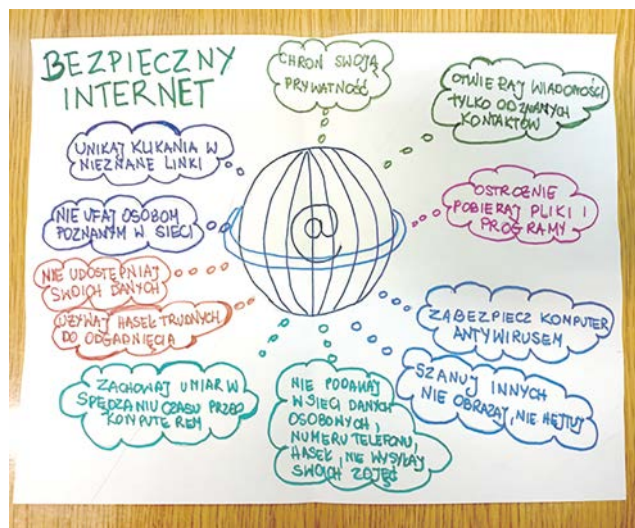 BEZPIECZNY
INTERNET
CHROŃ SWOJĄ
PRYWATNOŚĆ
OTWIERAJ WIADOMOŚCI
TYLKO OD ZNANYCH
KONTAKTÓW
UNIKAJ KLIKANIA W
NIEZNANE LINKI
OSTROŻNIE
POBIERAJ PLIKI I
PROGRAMY
NIE UFAJ OSOBOM
POZNANYM W SIECI
@
NIE UDOSTĘPNIAJ
SWOICH DANYCH
UŻYWAJ HASEŁ TRUDNYCH
DO ODGADNIĘCIA
ZABEZPIECZ KOMPUTER
ANTYWIRUSEM
SZANUJ INNYCH
NIE OBRAŻAJ, NIE HEJTUJ
ZACHOWAJ UMIAR W
SPĘDZANIU CZASU PRZED
KOMPUTEREM
NIE PODAWAJ
W SIECI DANYCH
OSOBOWYCH,
NUMERU TELEFONU,
HASEŁ, NIE WYSYŁAJ
SWOICH ZDJĘĆ